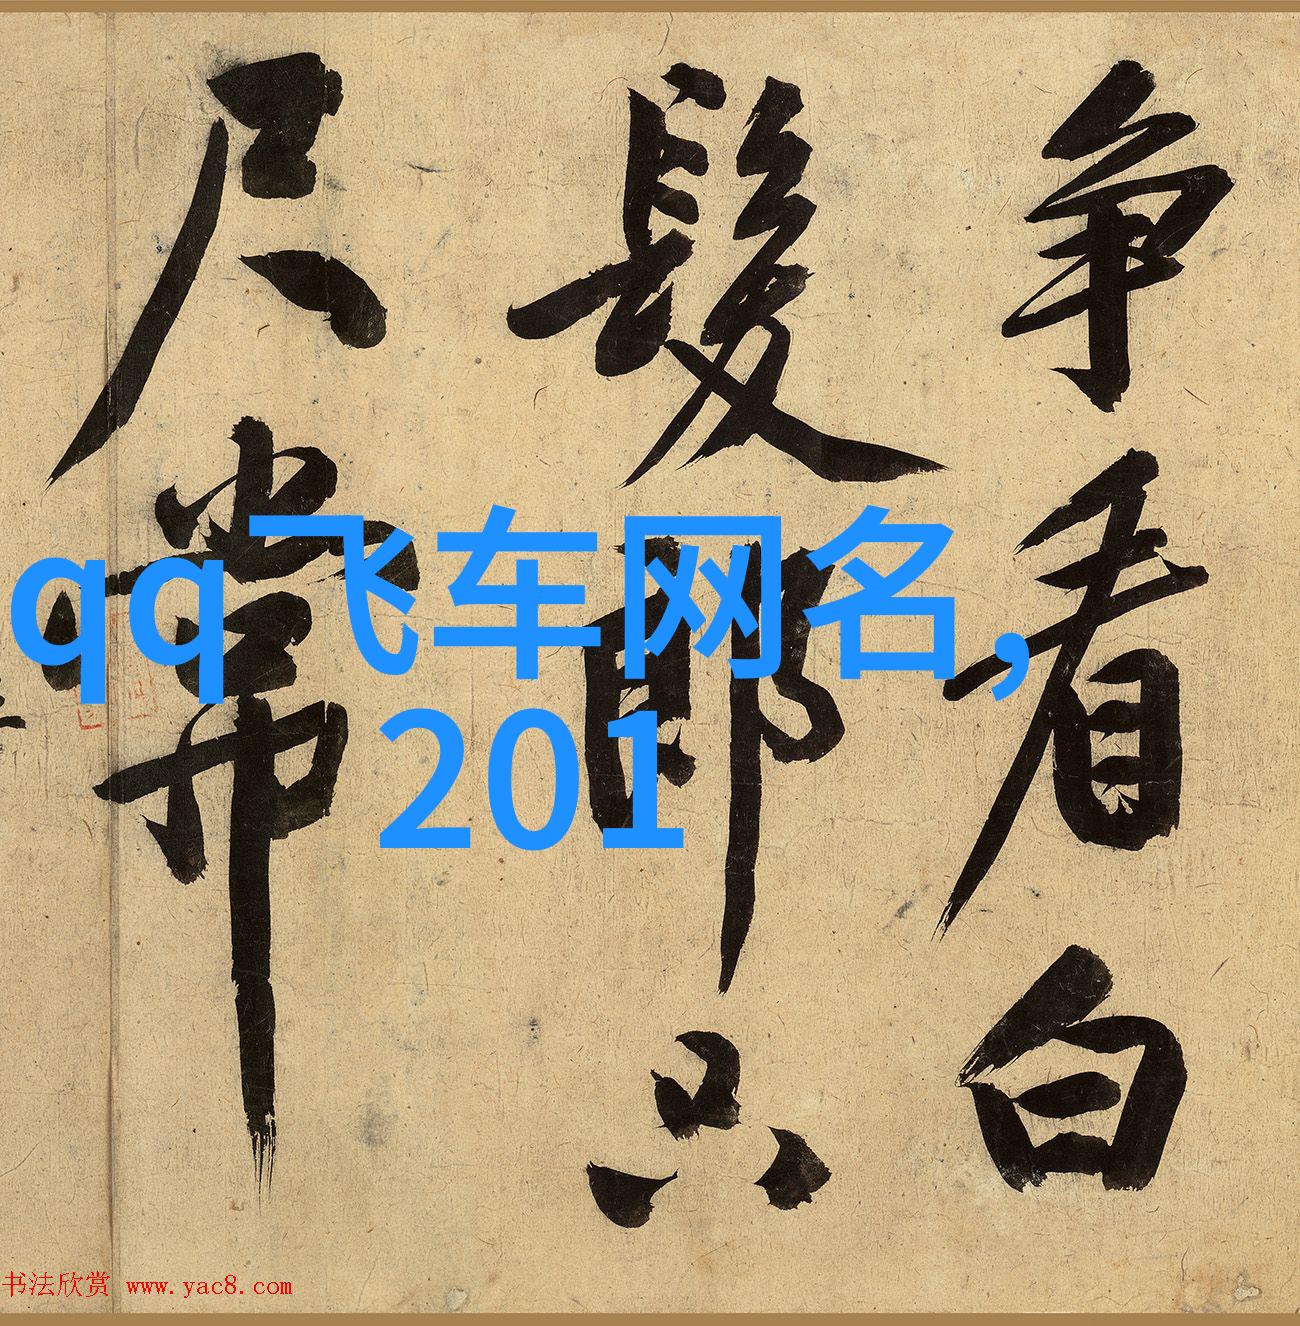 争看白
髮郎只
尺常
qq飞车网名,
201
书法欣赏 www.yac8.com